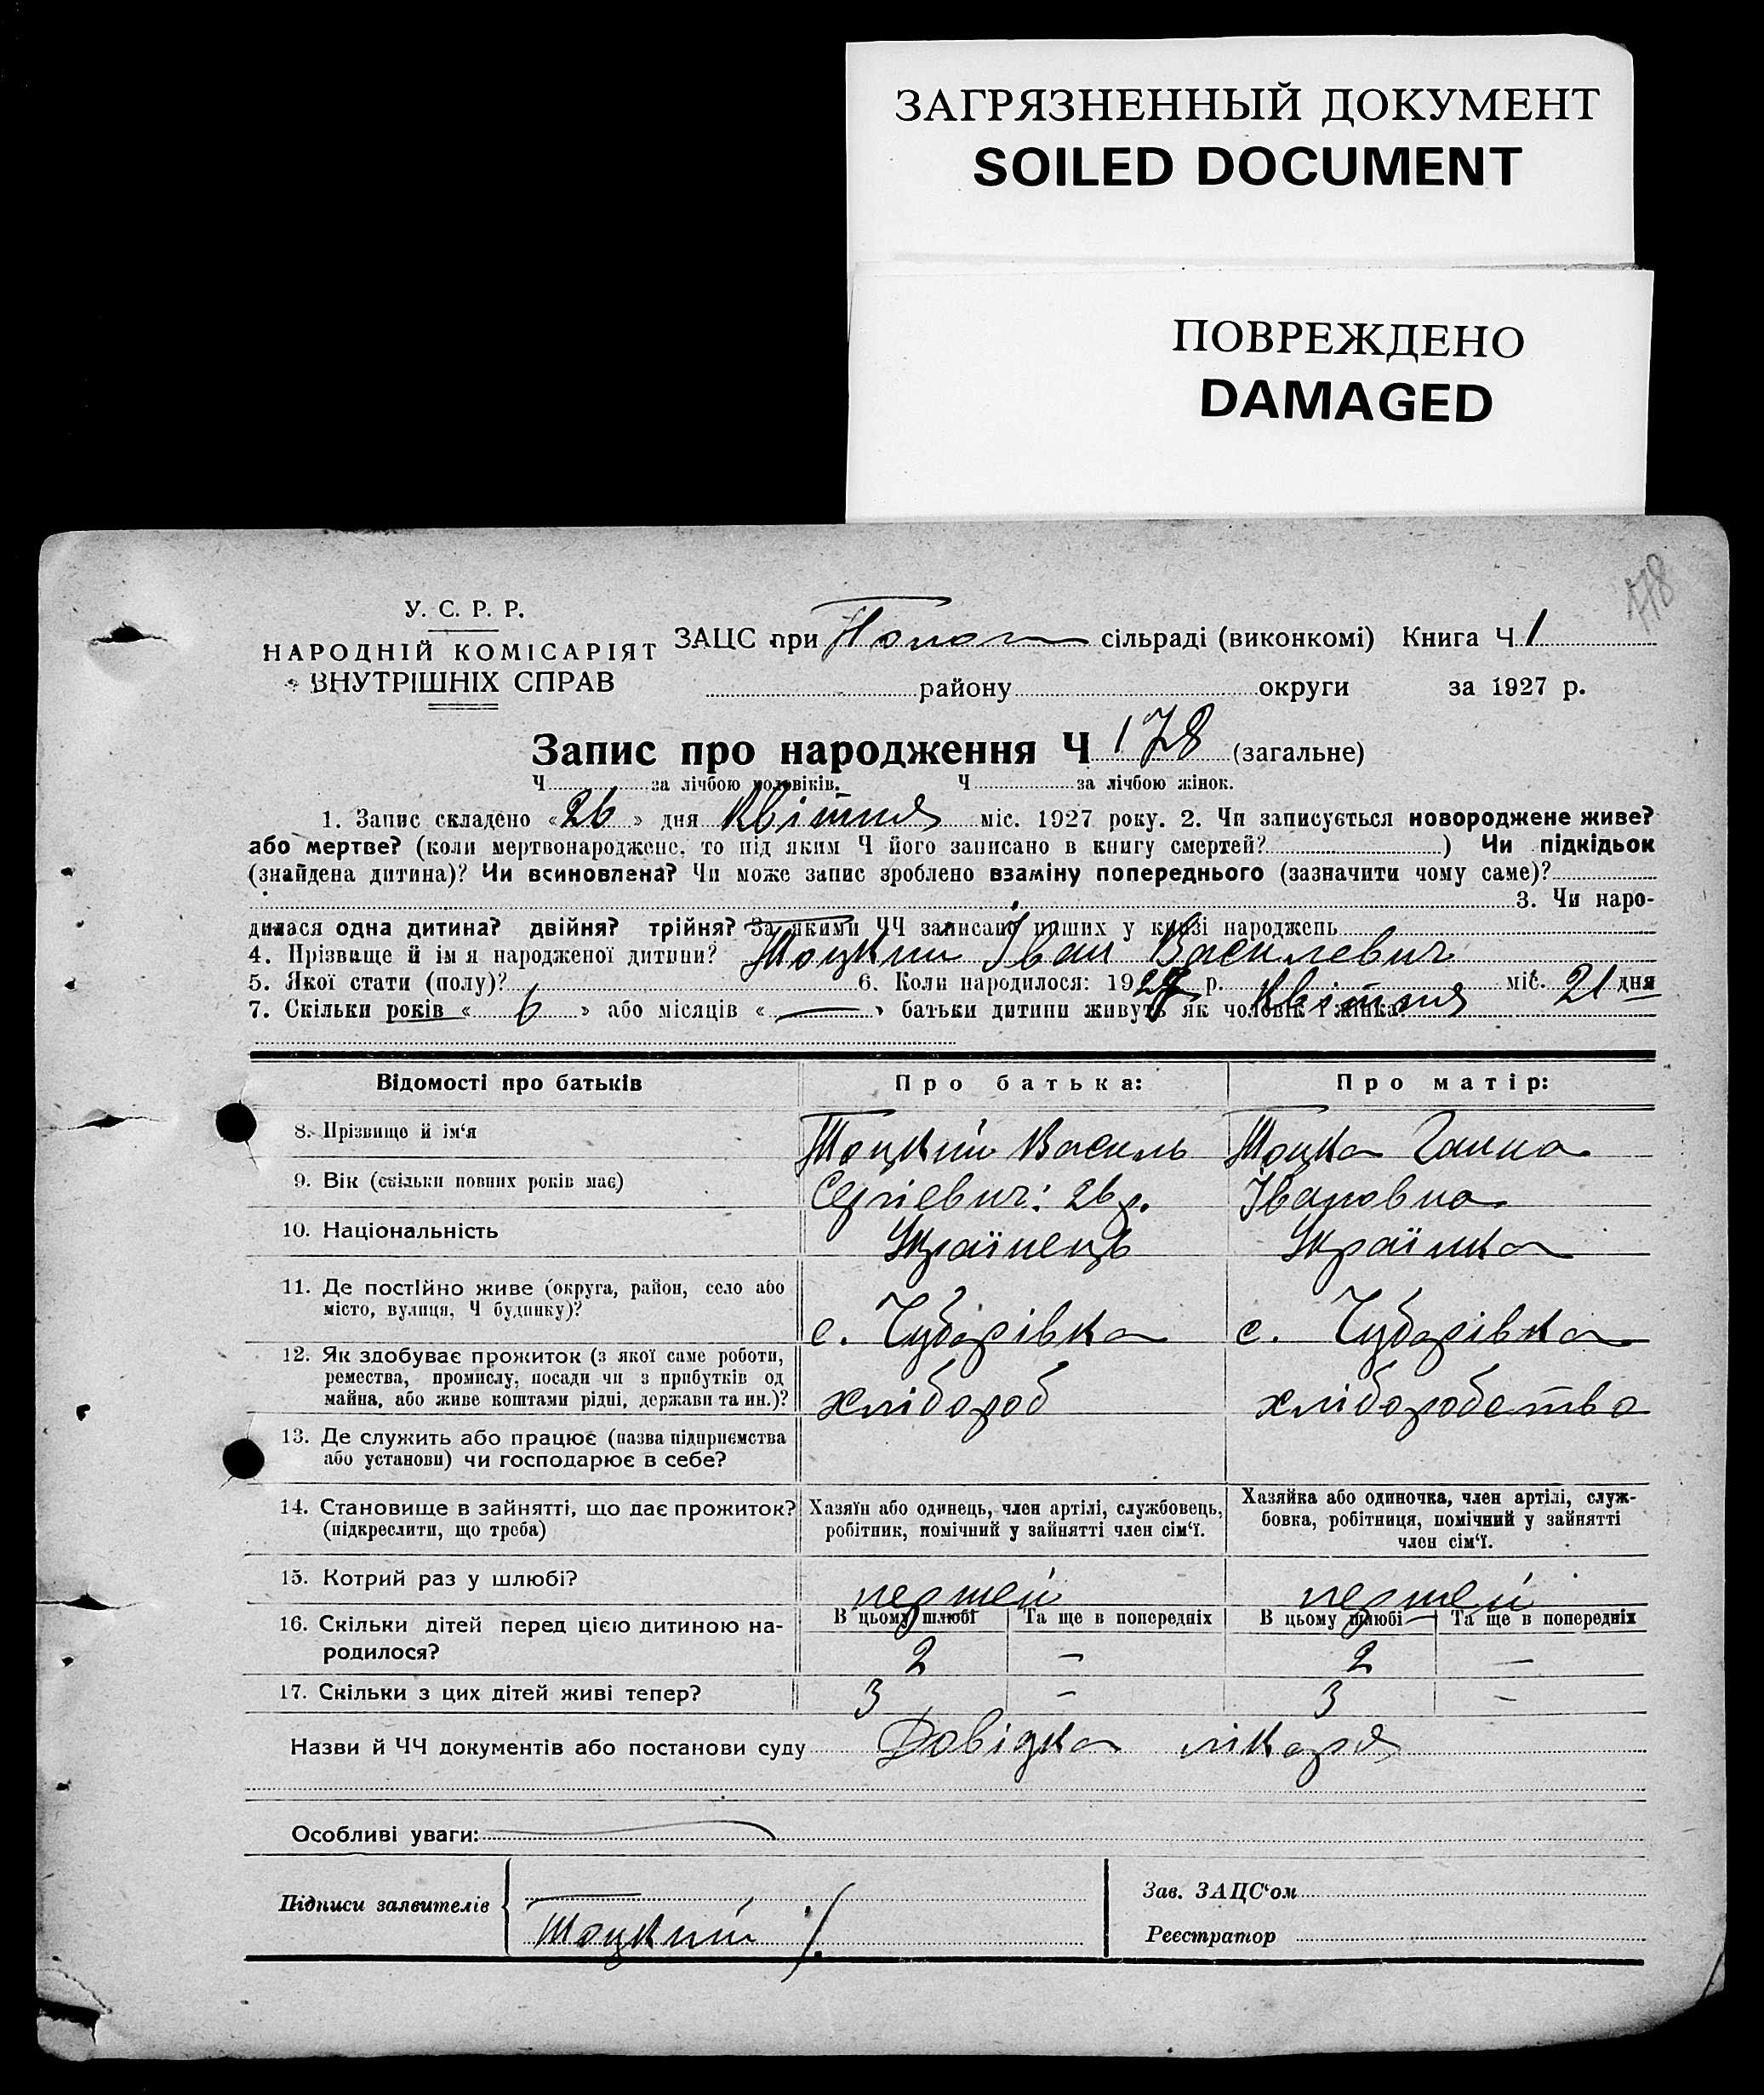 ЗАГРЯЗНЕННЫЙ ДОКУМЕНТ
SOILED DOCUMENT
ПОВРЕЖДЕНО
DAMAGED
178
У. С. Р. Р.
НАРОДНІЙ КОМІСАРІЯТ
ВНУТРІШНІХ СПРАВ
ЗАЦС при сільраді (виконкомі) Книга Ч 1
району округи за 1927 р.
Запис про народження Ч 178 (загальне)
Ч за лічбою чоловіків. Ч за лічбою жінок.
1. Запис складено «26» дня Квітня міс. 1927 року. 2. Чи записується новороджене живе?
або мертве? (коли мертвонароджене, то під яким Ч його записано в книгу смертей? ) Чи підкідьок
(знайдена дитина)? Чи всиновлена? Чи може запис зроблено взаміну попереднього (зазначити чому саме)?
3. Чи наро-
дилася одна дитина? двійня? трійня? За якими ЧЧ записано инших у книзі народжень
4. Прізвище й ім я народженої дитини? Тоцкий Іван Василевич
5. Якої стати (полу)? 6. Коли народилося: 1927 р. Квітня міс. 21 дня
7. Скільки років « 6 » або місяців « — » батьки дитини живуть як чоловік і жінка
Відомості про батьків Про батька: Про матір:
8. Прізвище й ім'я Тоцкий Василь Тоцка Ганна
9. Вік (скільки повних років має) Сергієвич: 26 р. Івановна
10. Національність Українець Українка
11. Де постійно живе (округа, район, село або
місто, вулиця, Ч будинку)? с. Чубарівка с. Чубарівка
12. Як здобуває прожиток (з якої саме роботи,
ремества, промислу, посади чи з прибутків од
майна, або живе коштами рідні, держави та ин.)? хлібороб хліборобство
13. Де служить або працює (назва підприємства
або установи) чи господарює в себе?
14. Становище в зайнятті, що дає прожиток?
(підкреслити, що треба)
Хазяїн або одинець, член артілі, службовець,
робітник, помічний у зайнятті член сім'ї.
Хазяйка або одиночка, член артілі, служ-
бовка, робітниця, помічний у зайнятті
член сім'ї.
15. Котрий раз у шлюбі? першей першей
В цьому шлюбі Та ще в попередніх В цьому шлюбі Та ще в попередніх
16. Скільки дітей перед цією дитиною на-
родилося? 2 — 2 —
17. Скільки з цих дітей живі тепер? 3 — 3 —
Назви й ЧЧ документів або постанови суду Довідка лікаря
Особливі уваги:
Підписи заявителів Тоцкий
Зав. ЗАЦС'ом
Реєстратор